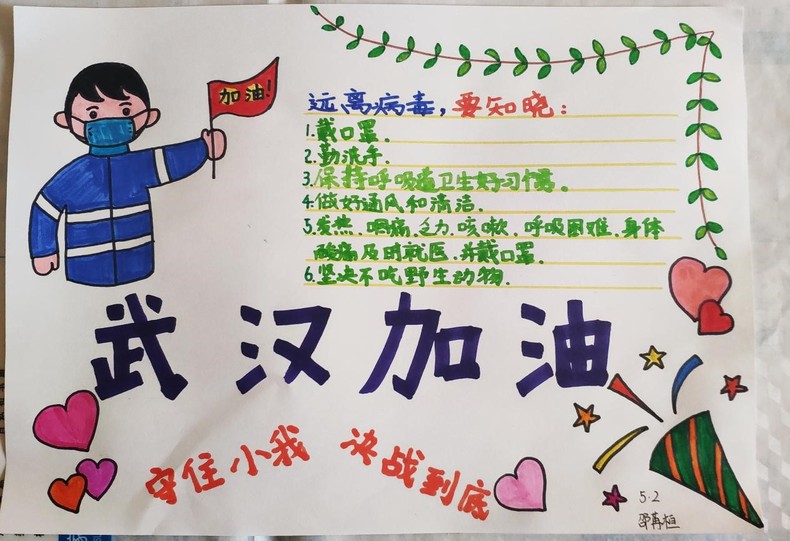 加油!
远离病毒,要知晓:
1.戴口罩.
2.勤洗手.
3.保持呼吸道卫生好习惯.
4.做好通风和清洁.
5.发热.咽痛.乏力.咳嗽.呼吸困难.身体
酸痛及时就医.并戴口罩.
6.坚决不吃野生动物.
武汉加油
守住小我 决战到底
5.2